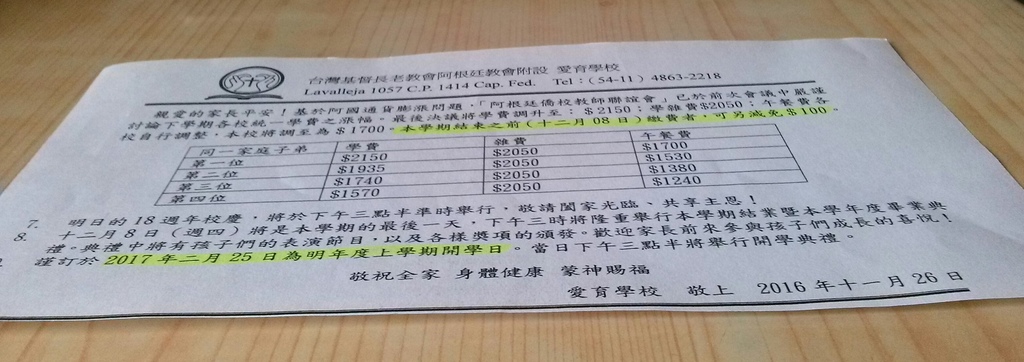 台灣基督長老教會阿根廷教會附設 愛育學校
Lavalleja 1057 C.P. 1414 Cap. Fed. Tel：(54-11) 4863-2218
親愛的家長平安！基於阿國通貨膨漲問題，「阿根廷僑校教師聯誼會」已於前次會議中嚴謹
討論下學期各校統一學費之漲幅。最後決議將學費調升至：$2150；學雜費$2050；午餐費各
校自行調整，本校將調至為 $1700。本學期結束之前(十二月 08 日)繳費者，可另減免 $100。
同一家庭子弟 學費 雜費 午餐費
第一位 $2150 $2050 $1700
第二位 $1935 $2050 $1530
第三位 $1740 $2050 $1380
第四位 $1570 $2050 $1240
7. 明日的 18 週年校慶，將於下午三點半準時舉行，敬請闔家光臨、共享主恩！
8. 十二月 8 日（週四）將是本學期的最後一天，下午三時將隆重舉行本學期結業暨本學年度畢業典
禮。典禮中將有孩子們的表演節目，以及各樣獎項的頒發。歡迎家長前來參與孩子們成長的喜悅！
謹訂於 2017 年二月 25 日為明年度上學期開學日。當日下午三點半將舉行開學典禮。
敬祝全家 身體健康 蒙神賜福
愛育學校 敬上 2016 年十一月 26 日